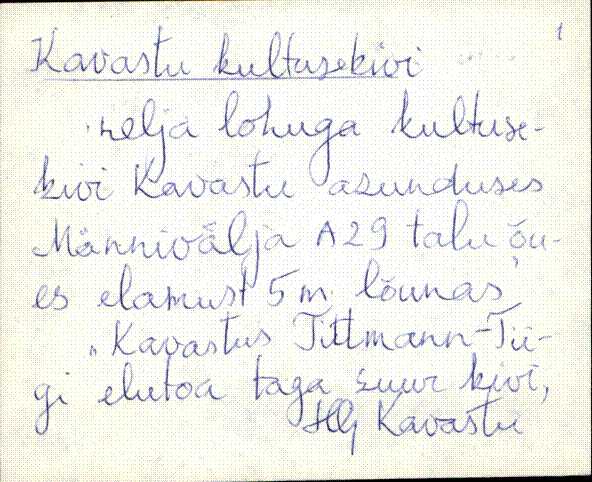 1
Kavastu kultusekivi
nelja lohuga kultuse-
kivi Kavastu asunduses
Männivälja A29 talu õu-
es elamust 5 m lõunas,
"Kavastus Tittmann-Tii-
gi elutoa taga suur kivi,
Kavastu